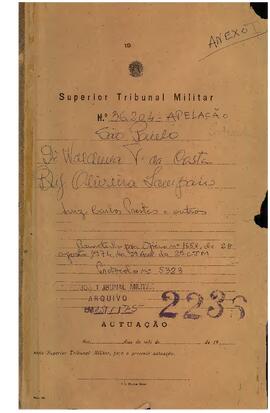 ANEXO I
19
Superior Tribunal Militar
N.º 36.204 - APELAÇÃO
São Paulo
Dr. Waldemar T. da Costa
Brig. Oliveira Sampaio
Luiz Carlos Prestes e outros
Remetido por Ofício nº 1554, de 28
agosto 1974, da 2ª Aud. da 2ª CJM
Protocolo nº 5323
TRIBUNAL MILITAR
ARQUIVO
2236
AUTUAÇÃO
Aos dias do mês de de 19
neste Superior Tribunal Militar, faço a presente autuação.